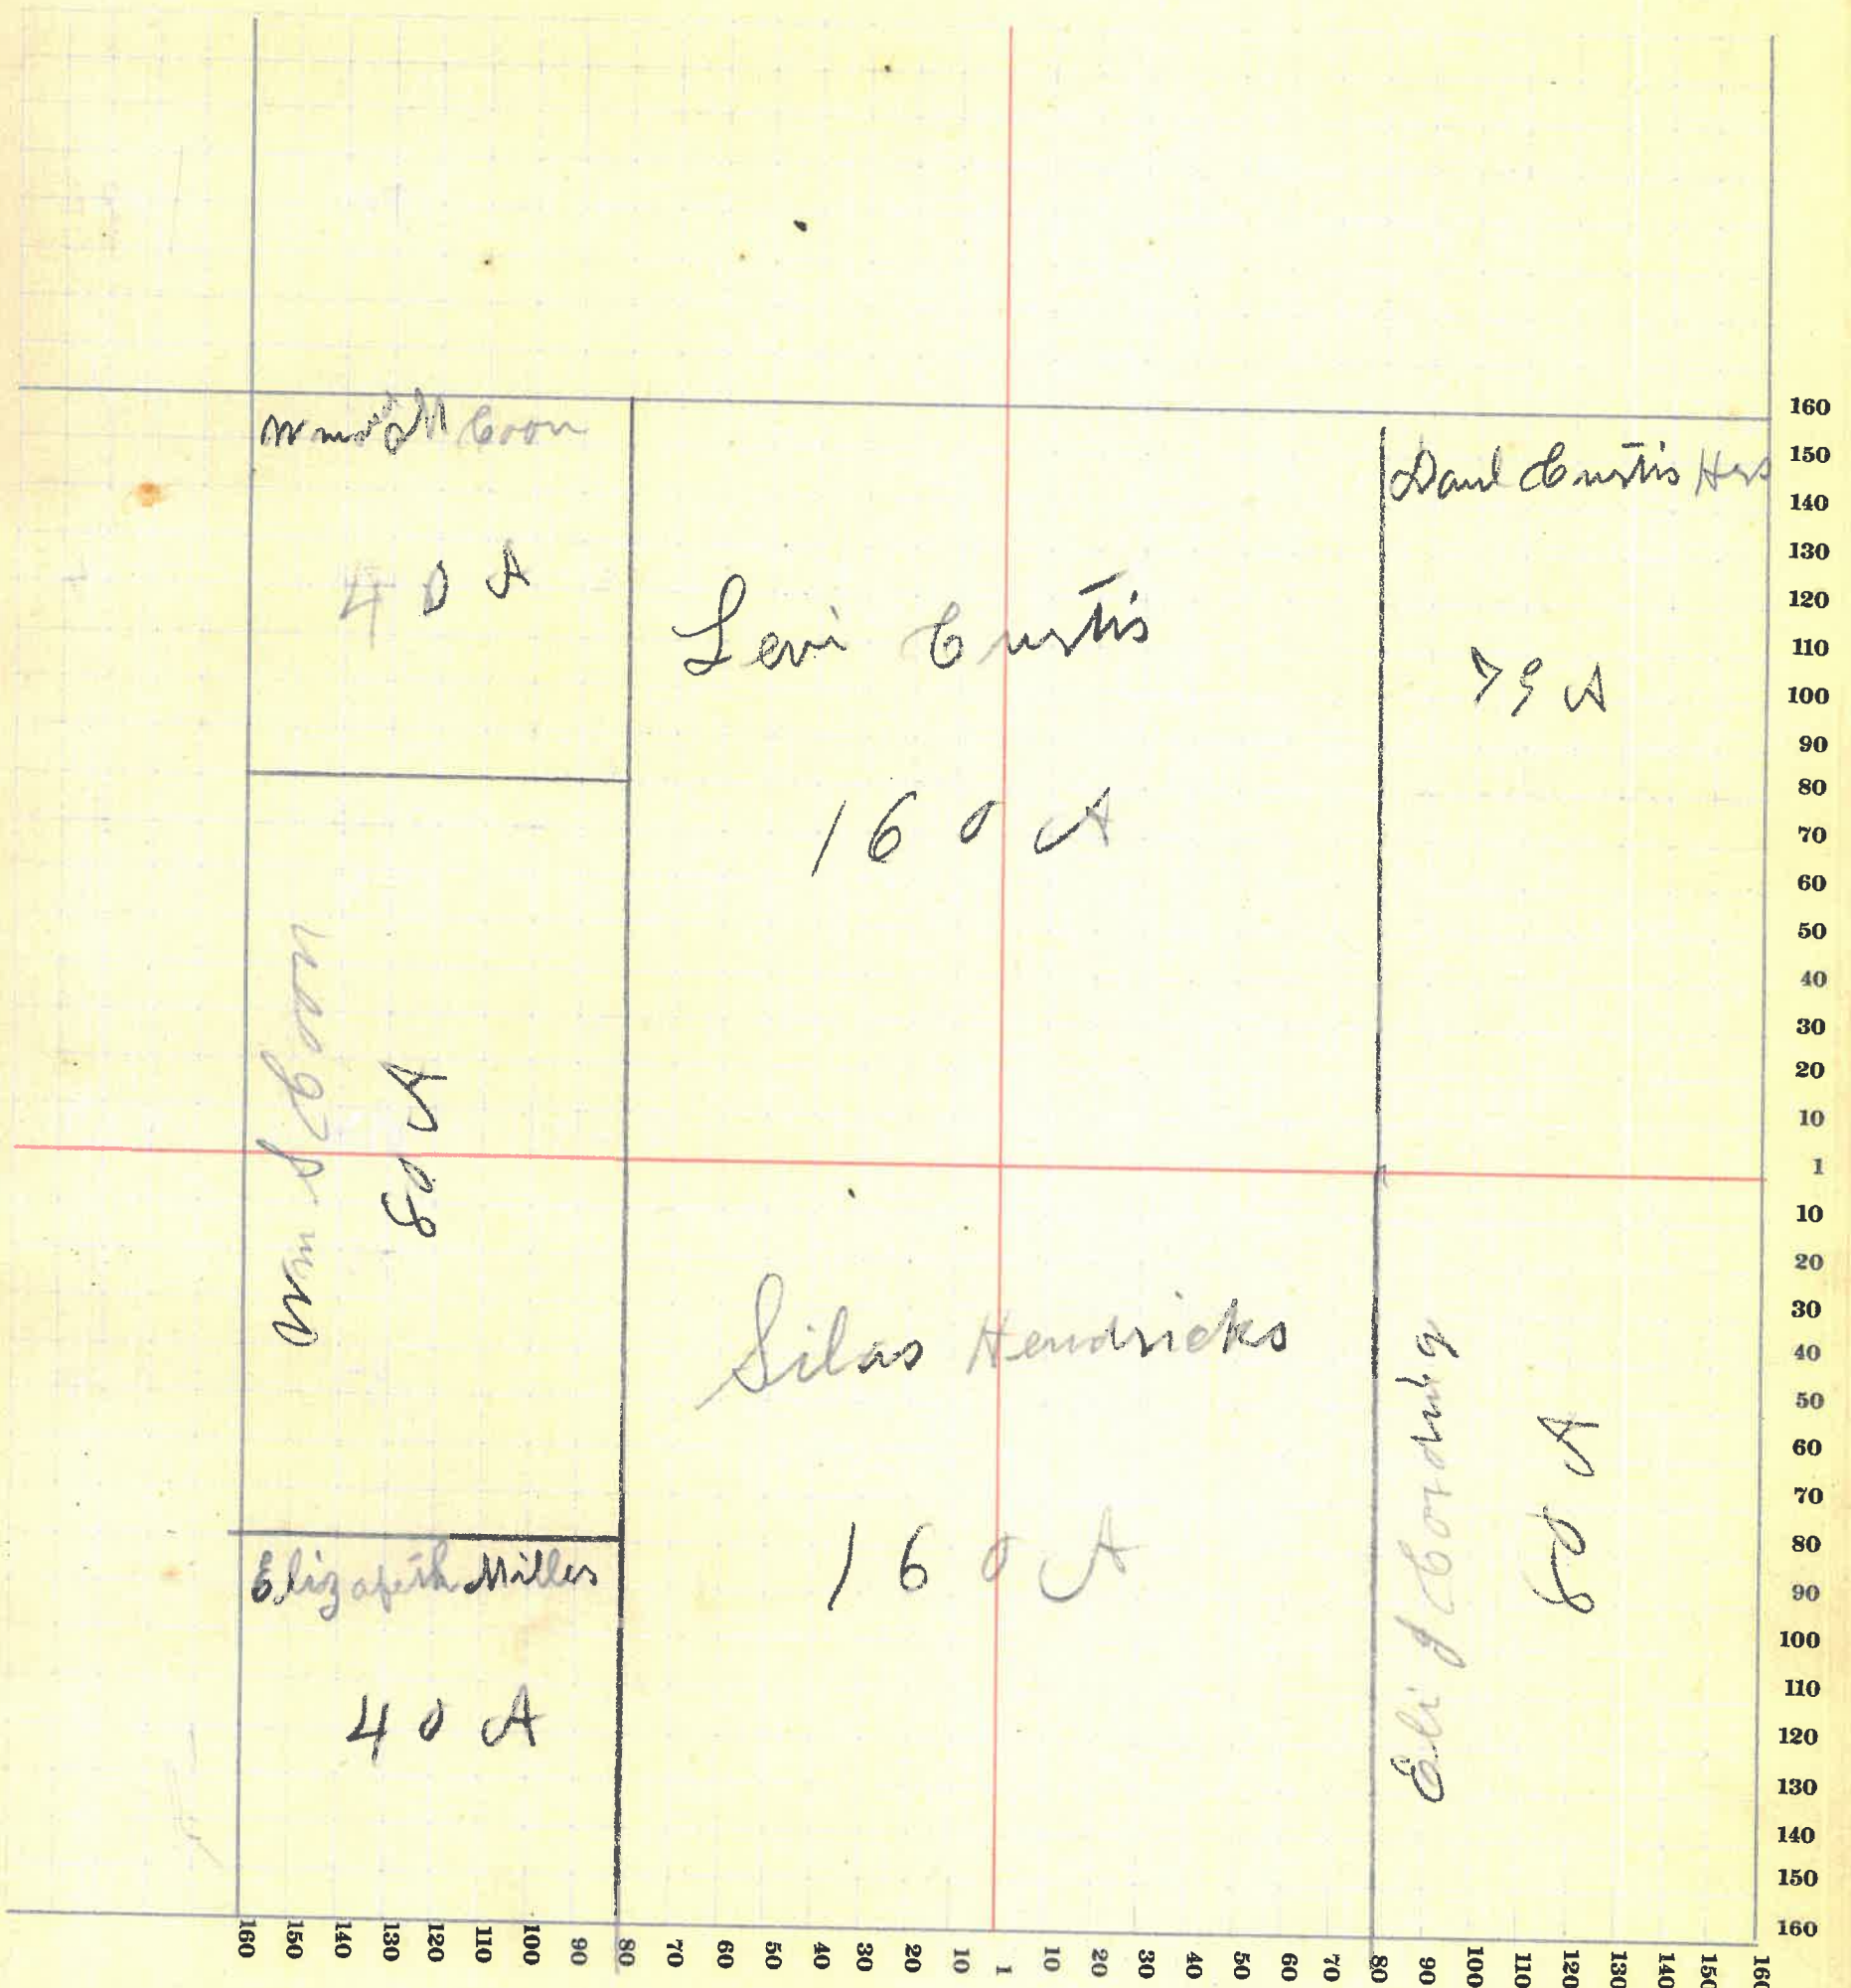 Wm S Coon
40 A
Levi Curtis
160 A
Danl Curtis Hrs
79 A
Wm S Coon
80 A
Silas Hendricks
160 A
Eli J Cording
80 A
Elizabeth Miller
40 A
160
150
140
130
120
110
100
90
80
70
60
50
40
30
20
10
1
10
20
30
40
50
60
70
80
90
100
110
120
130
140
150
160
160 150 140 130 120 110 100 90 80 70 60 50 40 30 20 10 1 10 20 30 40 50 60 70 80 90 100 110 120 130 140 150 160